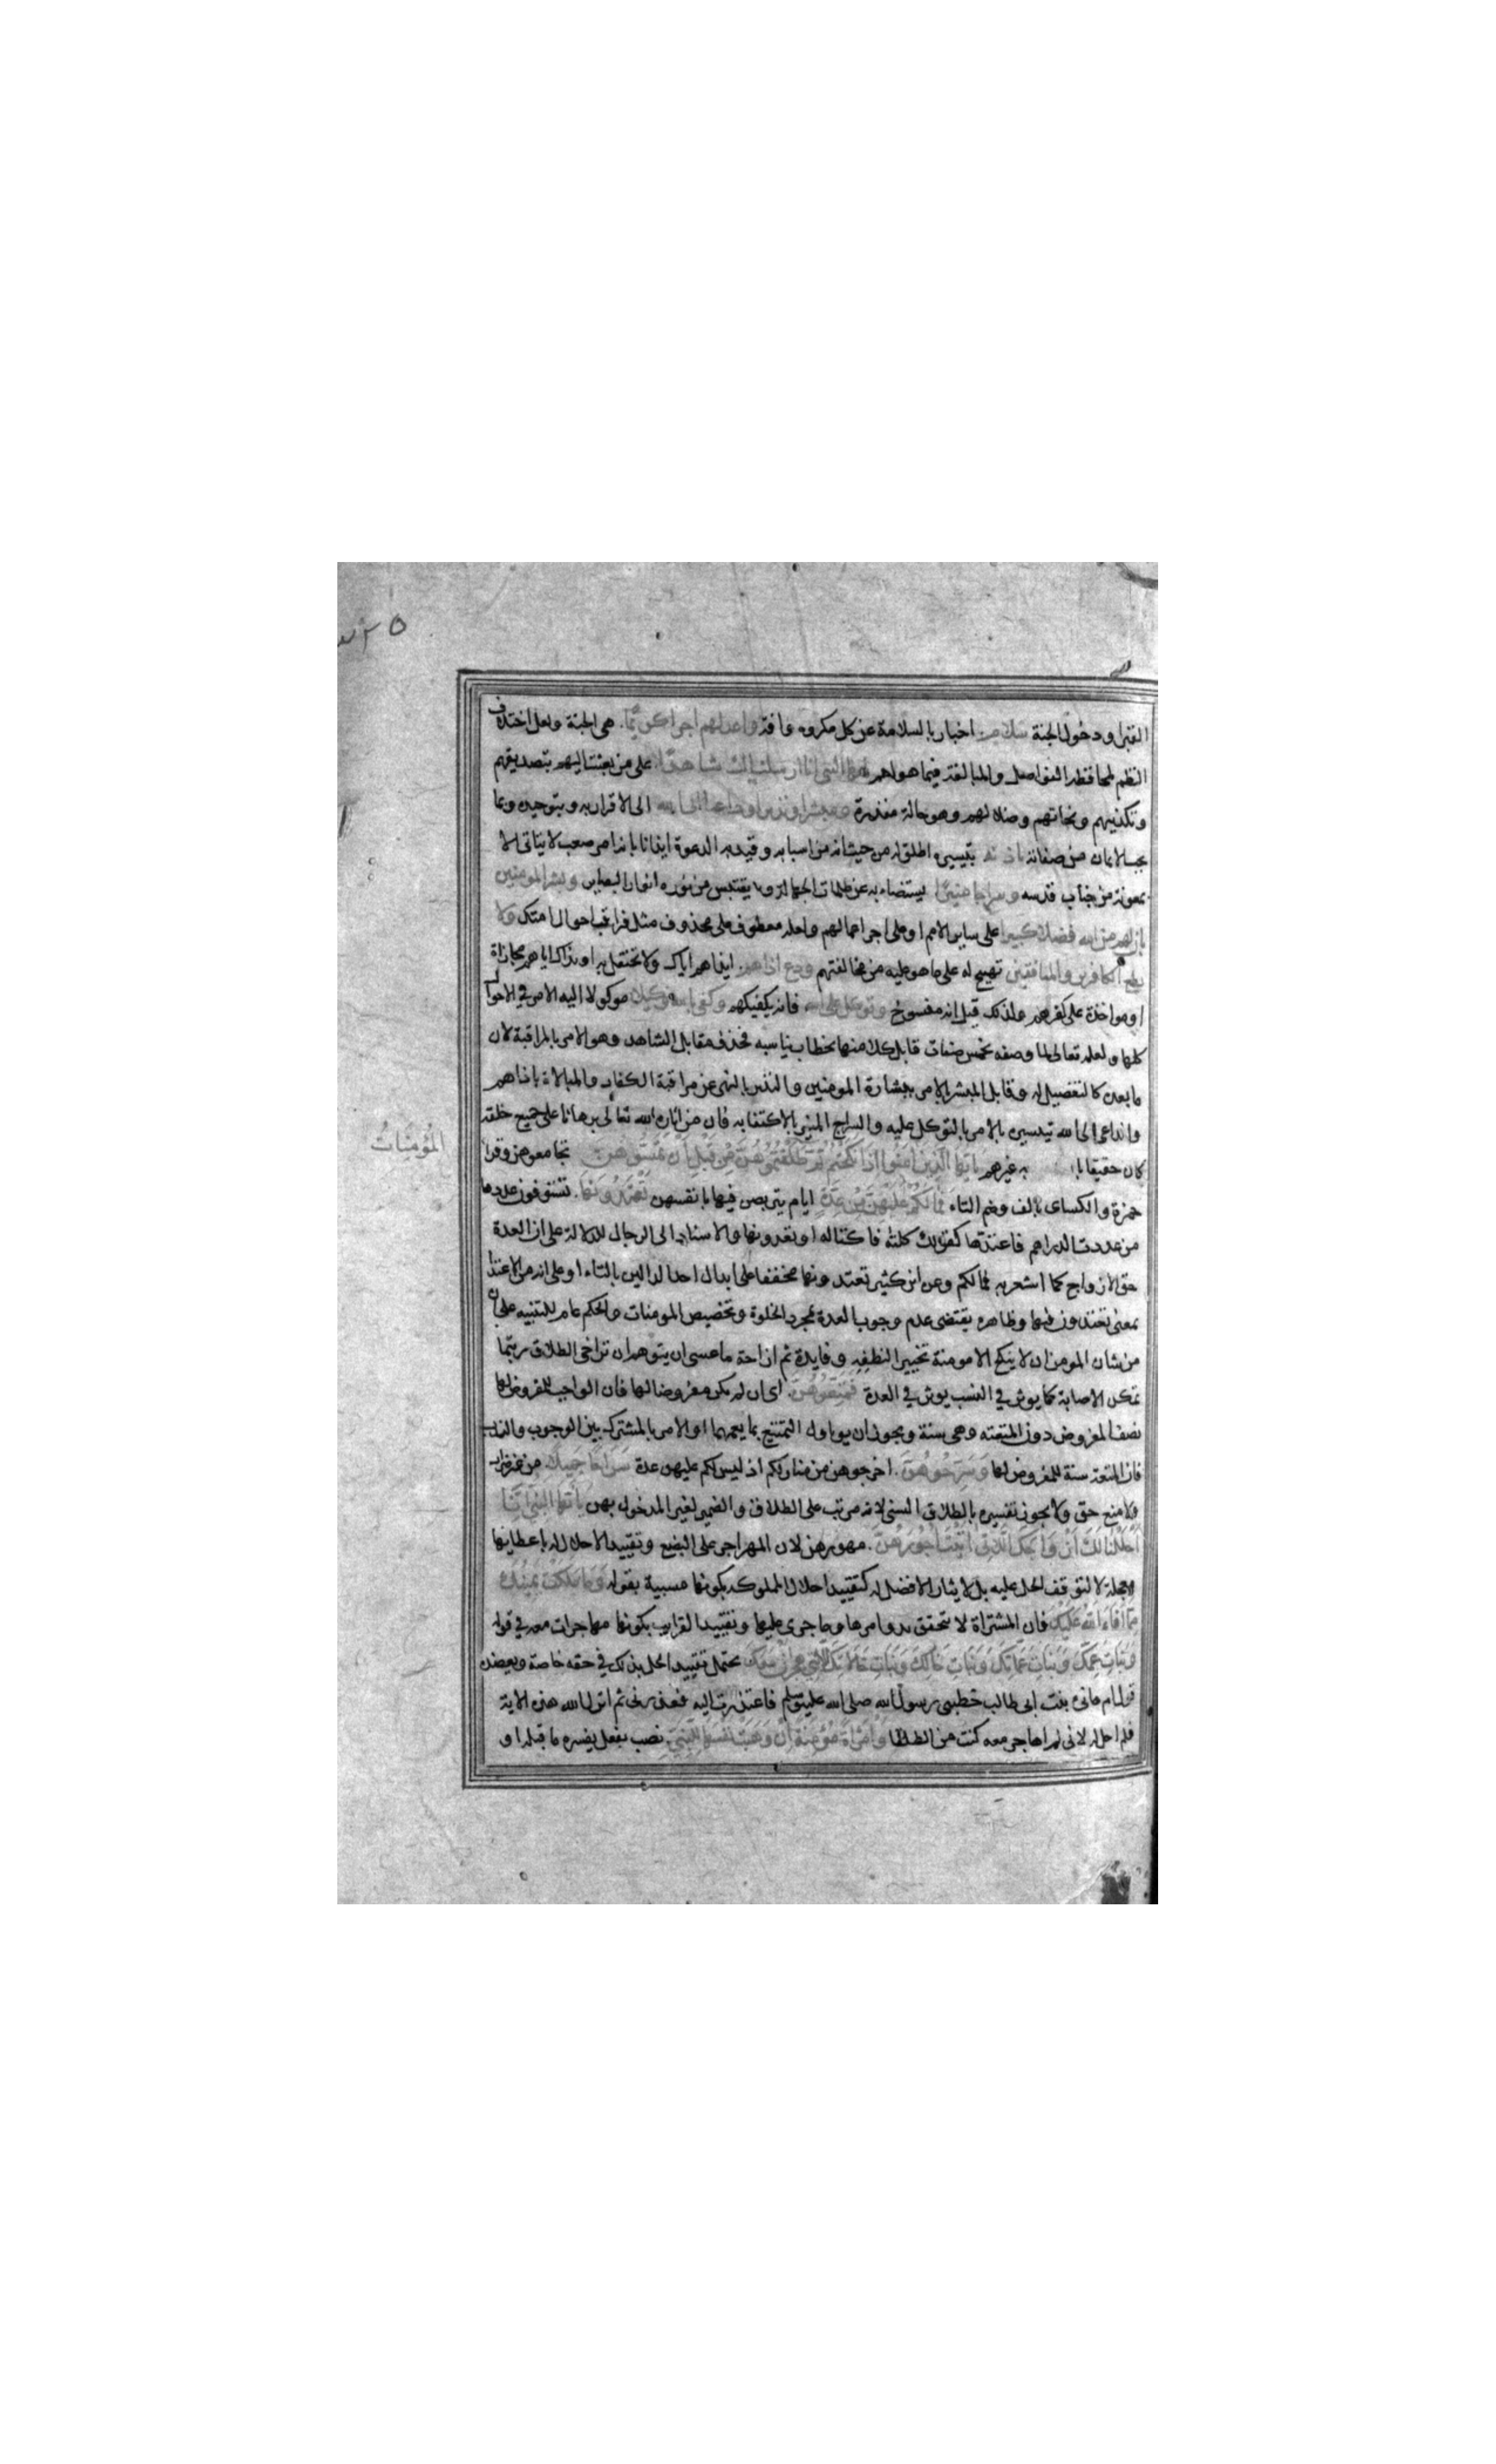 القبر او دخول الجنة سلام اخبار بالسلامة عن كل مكروه وافة واعد لهم اجرا كريما هي الجنة ولعل اختلاف
النظم لمحافظة الفواصل والمبالغة فيما هو اهم يا ايها النبي انا ارسلناك شاهدا على من بعثت اليهم بتصديقهم
وتكذيبهم ونجاتهم وضلالهم وهو حالة مقدرة ومبشرا ونذيرا وداعيا الى الله الى الاقرار به وبتوحيده وما
يجب الايمان من صفاته باذنه بتيسيره اطلق له من حيث انه من اسبابه وقيد به الدعوة ايذانا بانه امر صعب لا يتاتى الا
بمعونة من جناب قدسه وسراجا منيرا يستضاء به عن ظلمات الجهالة ويقتبس من نوره انوار البصاير وبشر المومنين
بان لهم من الله فضلا كبيرا على ساير الامم او على اجر اعمالهم ولعله معطوف على محذوف مثل فراقب احوال امتك ولا
تطع الكافرين والمنافقين تهييج له على ما هو عليه من مخالفتهم ودع اذاهم ايذاهم اياك ولا تحتفل به او ايذاك اياهم مجازاة
او مواخذة على كفرهم ولذلك قيل انه منسوخ وتوكل على الله فانه يكفيكهم وكفى بالله وكيلا موكولا اليه الامر في الاحوال
كلها ولعله تعالى لما وصفه بخمس صفات قابل كلا منها بخطاب يناسبه فحذف مقابل الشاهد وهو الامر بالمراقبة لان
ما بعده كالتفصيل له وقابل المبشر بالامر ببشارة المومنين والنذير بالنهي عن مراقبة الكفار والمبالاة باذاهم
والداعي الى الله بتيسيره بالامر بالتوكل عليه والسراج المنير بالاكتفا به فان من اناره الله تعالى برهانا على جميع خلقه
كان حقيقا با به غيرهم يا ايها الذين امنوا اذا نكحتم ثم طلقتموهن من قبل ان تمسوهن تجامعوهن وقرا
المُؤمِنَاتُ
حمزة والكساى بالف وضم التاء فَمَا لَكُمْ عَلَيْهِنَّ مِنْ عِدَّةٍ ايام يتربصن فيها بانفسهن تَعْتَدُّونَهَا تستوفون عددها
من عددت الدراهم فاعتدها كقولك كلته فاكتاله او تعدونها والاسناد الى الرجال للدلالة على ان العدة
حق الازواج كما اشعر به فمالكم وعن ابن كثير تعتدونها مخففا على ابدال احد الدالين بالتاء او على انه من الاعتدا
بمعنى تعتدون فيها وظاهره يقتضى عدم وجوب العدة بمجرد الخلوة وتخصيص المومنات والحكم عام للتنبيه على ان
من شان المومن ان لا ينكح الا مومنة تخييرا لنطفه وفايدة ثم ازاحة ما عسى ان يتوهم ان تراخى الطلاق ريثما
تمكن الاصابة كما يوثر في النسب يوثر في العدة فَمَتِّعُوهُنَّ اى ان لم يكن مفروضا لها فان الواجب للمفروض لها
نصف المفروض دون المتعة وهى سنة ويجوز ان يوول التمتيع بما يعمهما او الامر بالمشترك بين الوجوب والندب
فان المتعة سنة للمفروض لها وَسَرِّحُوهُنَّ اخرجوهن من منازلكم اذ ليس لكم عليهن عدة سَرَاحًا جَمِيلًا من غير ضرار
ولا منع حق ولا يجوز تفسيره بالطلاق السنى لانه مرتب على الطلاق والضمير لغير المدخول بهن يَا أَيُّهَا النَّبِيُّ إِنَّا
أَحْلَلْنَا لَكَ أَزْوَاجَكَ اللَّاتِي آتَيْتَ أُجُورَهُنَّ مهورهن لان المهر اجر على البضع وتقييد الاحلال له باعطايها
معجلة لا لتوقف الحل عليه بل لايثار الافضل له كتقييد احلال المملوكة بكونها مسبية بقوله وَمَا مَلَكَتْ يَمِينُكَ
مِمَّا أَفَاءَ اللَّهُ عَلَيْكَ فان المشتراة لا تتحقق بدو امرها وما جرى عليها وتقييد القرايب بكونها مهاجرات معه في قوله
وَبَنَاتِ عَمِّكَ وَبَنَاتِ عَمَّاتِكَ وَبَنَاتِ خَالِكَ وَبَنَاتِ خَالَاتِكَ اللَّاتِي هَاجَرْنَ مَعَكَ يحتمل تقييد الحل بذلك في حقه خاصة ويعضده
قول ام هانى بنت ابى طالب خطبنى رسول الله صلى الله عليه وسلم فاعتذرت اليه فعذرنى ثم انزل الله هذه الاية
فلم احل له لانى لم اهاجر معه كنت من الطلقا وَامْرَأَةً مُؤْمِنَةً إِنْ وَهَبَتْ نَفْسَهَا لِلنَّبِيِّ نصب بفعل يفسره ما قبله او